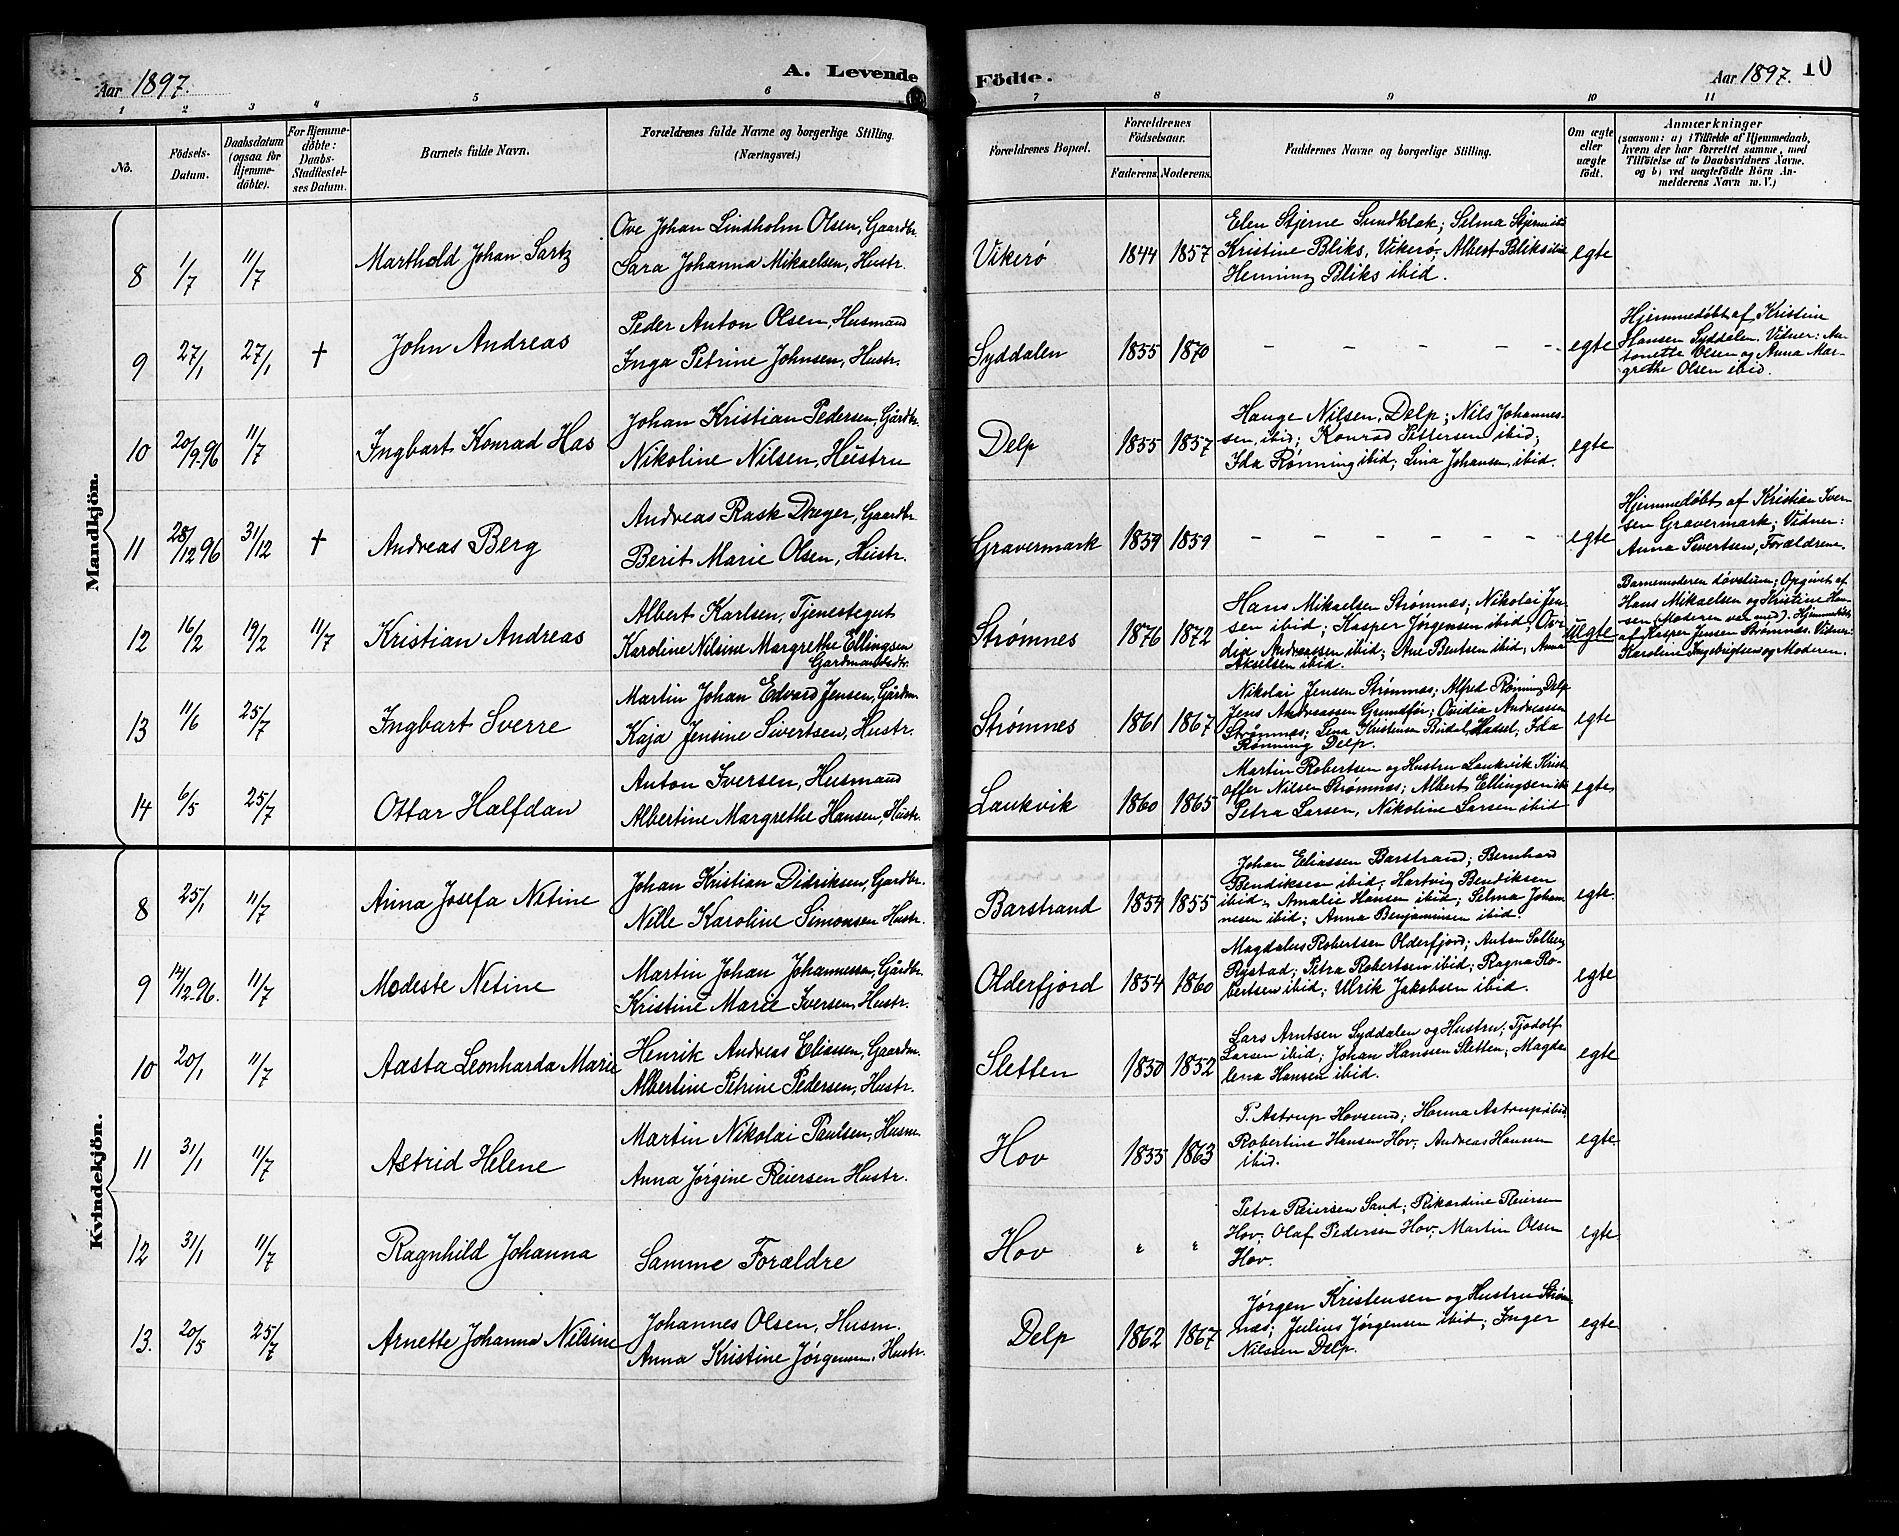 Aar 1897.
A. Levende
Födte.
Aar 1897. 10
1 2 3 4 5 6 7 8 9 10 11
No.
Födsels-
Datum.
Daabsdatum
(ogsaa for
Hjemme-
döbte).
For Hjemme-
döbte:
Daabs-
Stadfæstel-
ses Datum.
Barnets fulde Navn.
Forældrenes fulde Navne og borgerlige Stilling.
(Næringsvei.)
Forældrenes Bopæl.
Forældrenes
Födselsaar.
Faderens. Moderens.
Faddernes Navne og borgerlige Stilling.
Om ægte
eller
uægte
födt.
Anmærkninger
(saasom: a) i Tilfælde af Hjemmedaab,
hvem der har forrettet samme, med
Tilföielse af to Daabsvidners Navne.
og b) ved uægtefödte Börn An-
melderens Navn m. V.)
Mandkjön.
8 1/7 11/7 Marthold Johan Sartz
Ove Johan Lindholm Olsen, Gaardbr.
Sara Johanna Mikaelsen, Hustr.
Vikerø 1844 1857
Elen Stjerne Sundklak; Selma Stjerne ibid
Kristine Bliks, Vikerø; Albert Bliks ibid
Henning Bliks ibid.
egte
9 27/1 27/1 † John Andreas
Peder Anton Olsen, Husmand
Inga Petrine Johnsen, Hustr.
Syddalen 1855 1870
– – – – – –
egte
Hjemmedøbt af Kristine
Hansen Syddalen. Vidner: An-
tonette Olsen og Anna Mar-
grethe Olsen ibid.
10 20/9.96 11/7 Ingbart Konrad Has
Johan Kristian Pedersen, Gårdbr.
Nikoline Nilsen, Hustru
Delp 1855 1857
Hauge Nilsen, Delp; Nils Johannes-
sen, ibid; Konrad Pettersen ibid;
Ida Rønning ibid; Lina Johansen, ibid.
egte
11 28/12 96 31/12 † Andreas Berg
Andreas Rask Dreyer, Gaardbr.
Berit Marie Olsen, Hustr.
Gravermark 1859 1859
– – – – – – –
egte
Hjemmedøbt af Kristian Iver-
sen Gravermark; Vidner:
Anna Sivertsen, Forældrene.
12 16/2 19/2 11/7 Kristian Andreas
Albert Karlsen, Tjenestegut
Karoline Nilsine Margrethe Ellingsen
Gardmandsdtr.
Strømnes 1876 1872
Hans Mikaelsen Strømnæs; Nikolai Jen-
sen ibid; Kasper Jørgensen ibid; Ovi-
dia Andreassen ibid; Ane Bentsen ibid; Anna
Akselsen ibid.
Uegte
Barnemoderen døvstum; Opgivet af
Hans Mikaelsen og Kristine Han-
sen (Moderen var med). Hjemmedøbt
af Kasper Jensen Strømnæs. Vidner:
Karoline Ingebrigtsen og Moderen.
13 11/6 25/7 Ingbart Sverre
Martin Johan Edvard Jensen, Gårdm.
Kaja Jensine Sivertsen, Hustr.
Strømnes 1861 1867
Nikolai Jensen Strømnæs; Alfred Rønning Delp
Jens Andreassen Grundfør; Ovidia Andreassen
Strømnæs; Lena Kristensen Hadsel, Ida
Rønning Delp.
egte
14 6/5 25/7 Ottar Halfdan
Anton Iversen, Husmand
Albertine Margrethe Hansen, Hustr.
Laukvik 1860 1865
Martin Robertsen og Hustru Laukvik Krist-
offer Nilsen Strømnæs; Albert Ellingsen ib
Petra Larsen, Nikoline Larsen ibid
egte
Kvindekjön.
8 25/1 11/7 Anna Josefa Netine
Johan Kristian Didriksen, Gardbr.
Nille Karoline Simonsen Hustr.
Barstrand 1854 1855
Johan Eliassen Barstrand; Bernhard
Bendiksen ibid; Hartvig Bendiksen
ibid; Amalie Hansen ibid; Selma Johan-
nesen ibid; Anna Benjaminsen ibid.
egte.
9 14/12.96. 11/7 Modeste Netine
Martin Johan Johannessen, Gårdbr.
Kristine Marie Iversen, Hustr.
Olderfjord 1854 1860
Magdalus Robertsen Olderfjord; Anton Solberg
Rystad; Petra Robertsen ibid; Ragna Ro-
bertsen ibid; Ulrik Jakobsen ibid.
egte
10 20/1 11/7 Aasta Leonharda Marie
Henrik Andreas Eliassen, Gaardm.
Albertine Petrine Pedersen, Hustr.
Sletten 1850 1852
Lars Arntsen Syddalen og Hustru; Tjodolf
Larsen ibid; Johan Hanssen Sletten; Magda-
lena Hansen ibid.
egte
11 31/1 11/7 Astrid Helene
Martin Nikolai Paulsen, Husm.
Anna Jørgine Reiersen Hustr.
Hov 1855 1863
P. Astrup Hovsund; Hanna Astrup ibid
Robertine Hansen Hov; Andreas Hansen
ibid.
egte
12 31/1 11/7 Ragnhild Johanna
Samme Forældre
Hov " "
Petra Reiersen Sand; Rikardine Reiersen
Hov; Olaf Pedersen Hov; Martin Olsen
Hov.
egte
13. 20/5 25/7 Arnette Johanna Nilsine
Johannes Olsen, Husm.
Anna Kristine Jørgensen, Hustr.
Delp 1862 1867
Jørgen Kristensen og Hustru Strøm-
næs; Julius Jørgensen ibid; Inger
Nilssen Delp.
egte